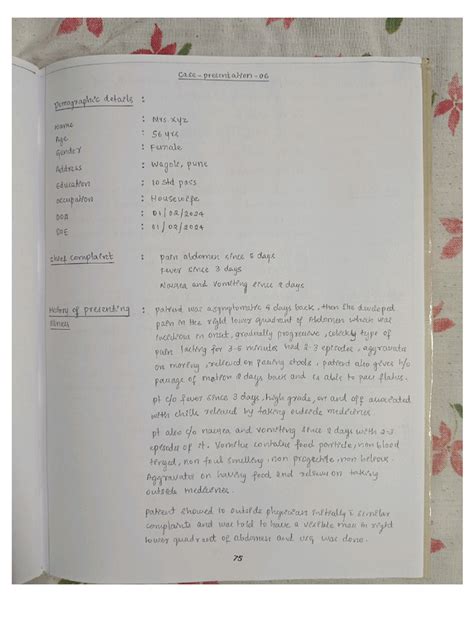 Case - presentation - 06
Demographic details :
Name : Mrs xyz
Age : 56 yrs
Gender : Female
Address : Wagole, pune
Education : 10 std pass
occupation : Housewife
DOA : 01/02/2024
DOE : 01/02/2024
chief complaint : pain abdomen since 5 days
Fever since 3 days
Nausea and vomiting since 2 days
History of presenting : patient was asymptomatic 4 days back, then she developed
illness pain in the right lower quadrant of Abdomen which was
insidious in onset, gradually progressive, colicky type of
pain lasting for 3-5 minutes had 2-3 episodes, aggravates
on moving, relieved on passing stools, patient also gives h/o
passage of motion 2 days back and is able to pass flatus.
pt c/o fever since 3 days, high grade, on and off associated
with chills relieved by taking outside medicines.
pt also c/o nausea and vomiting since 2 days with 2-3
episodes of it. Vomitus contains food particle, non blood
tinged, non foul smelling, non projectile, non bilious.
Aggravates on having food and relieves on taking
outside medicines.
patient showed to outside physician initially similar
complaints and was told to have a visible mass in right
lower quadrant of abdomen and usg was done.
75